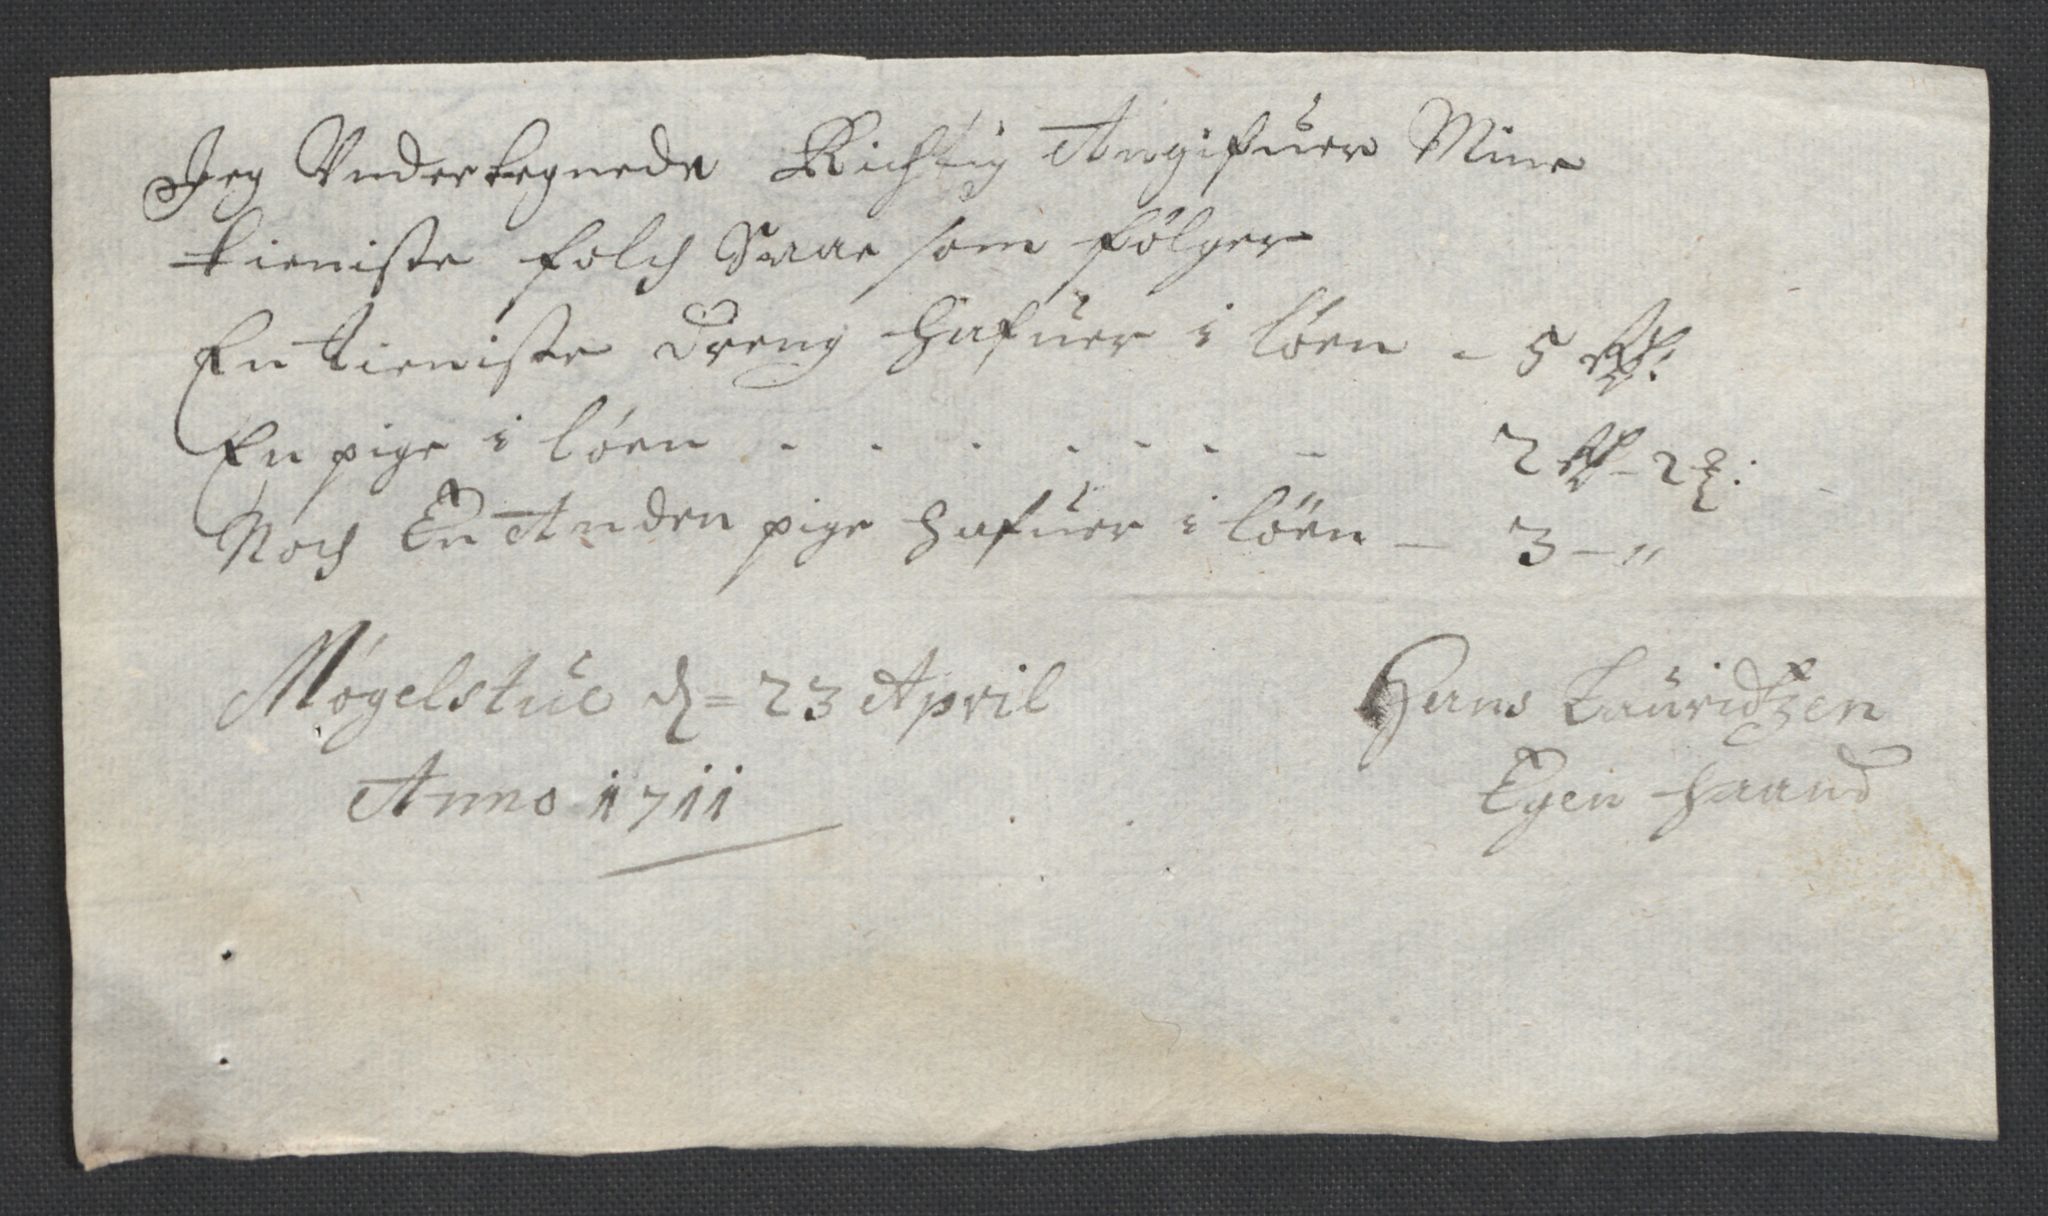 Jeg Vndertegnede Richtig Angifuer Mine
tieniste folch Saae som følger
En tieniste dreng hafuer i löen - 5 Rd:
En pige i löen - - - - - - - 2 Rd - 2 ß:
Noch En Anden pige hafuer i löen - 3 - "
Møgelstue d = 23 April
Anno 1711
Hans Lauridtzen
Egen haand